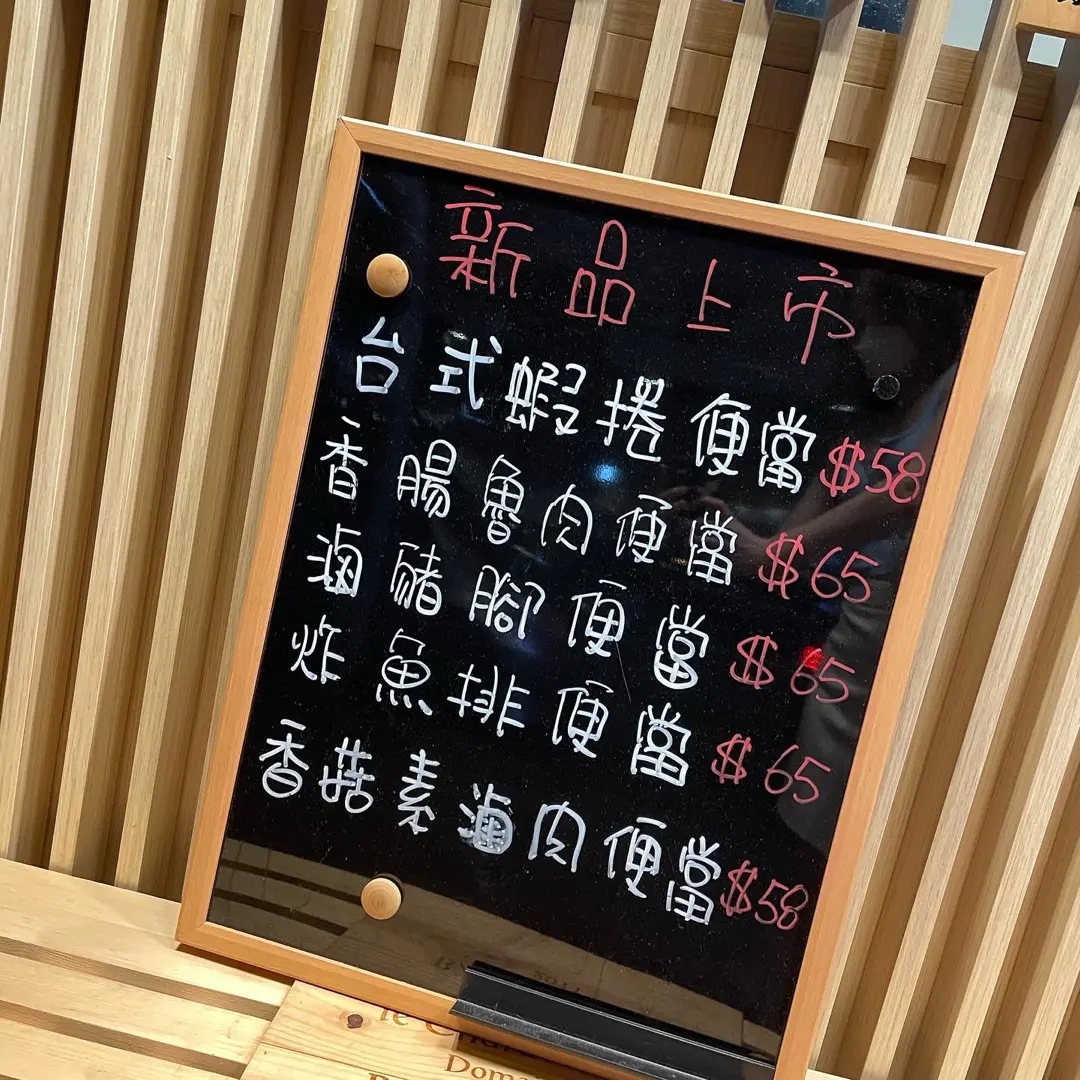 新品上市
台式蝦捲便當$58
香腸魯肉便當$65
滷豬腳便當$65
炸魚排便當$65
香菇素滷肉便當$58
Doma